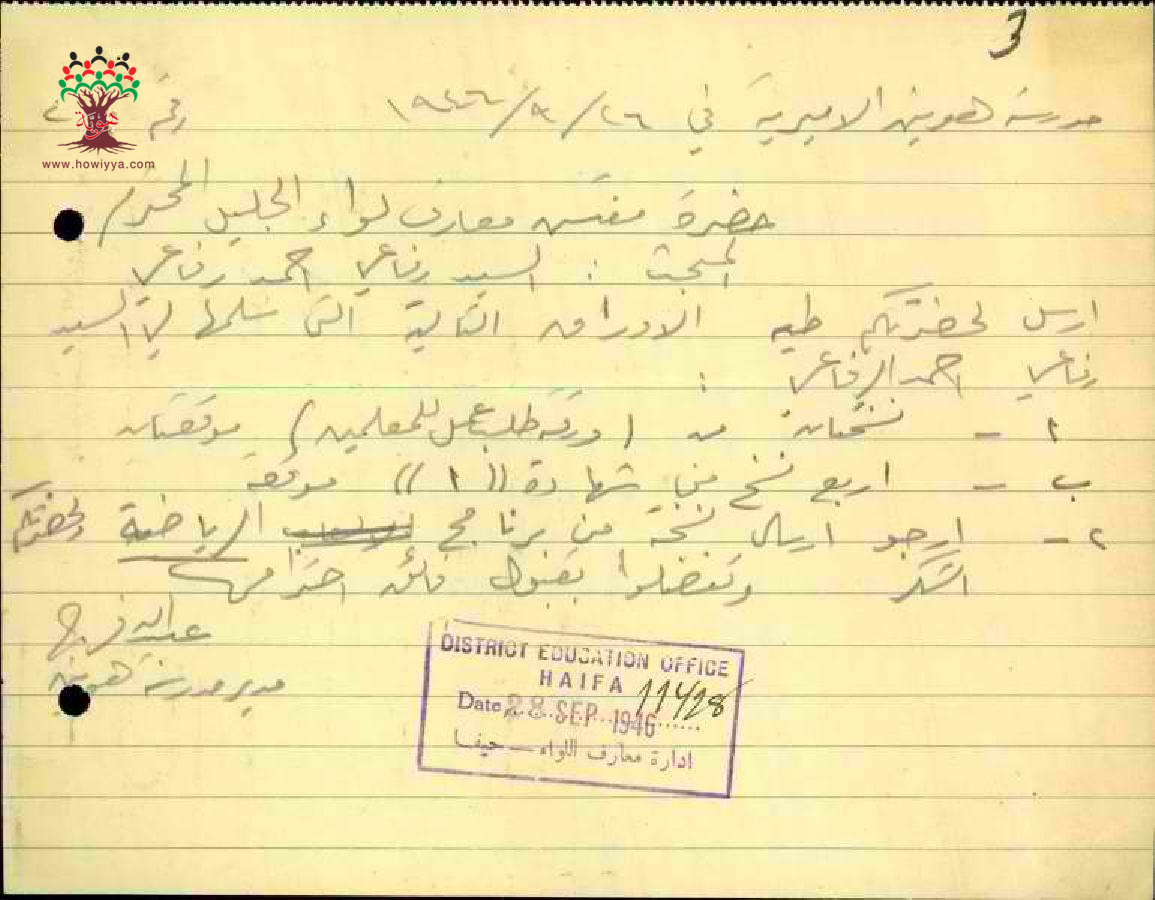 3
هوية
www.howiyya.com
مدرسة هونين الاميرية في ٢٦/٩/١٩٤٦ رقم
حضرة مفتش معارف لواء الجليل المحترم
المبحث : السيد رفاعي احمد رفاعي
ارسل لحضرتكم طيه الاوراق التالية التي سلمها لي السيد
رفاعي احمد الرفاعي :
١ - نسختان من (ورقة طلب عمل للمعلمين) موقعتان
ب - اربع نسخ من شهادة ((١)) موقعة
٢ - ارجو ارسال نسخة من برنامج الرياضة ولحضرتكم
الشكر وتفضلوا بقبول فائق احترامي
عبدالله فرج
مدير مدرسة هونين
DISTRICT EDUCATION OFFICE
HAIFA
11428
Date 28 SEP 1946
ادارة معارف اللواء — حيفا